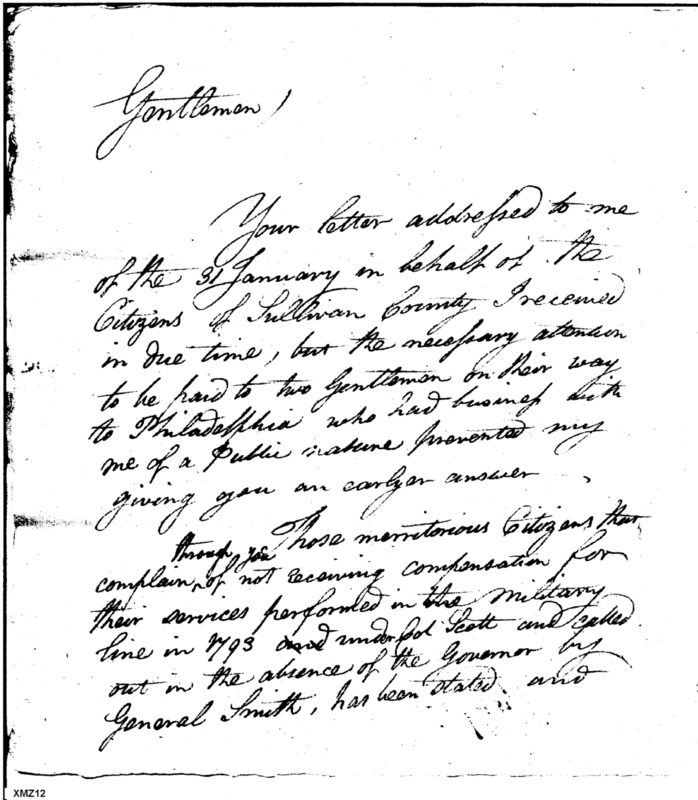 Gentlemen,
Your letter addressed to me
of the 31 January in behalf of the
Citizens of Sullivan County I received
in due time, but the necessary attention
to be paid to two Gentlemen on their way
to Philadelphia who had business with
me of a Public nature prevented my
giving you an earlyer answer.
Those merritorious Citizens that
through you
complain of not receiving compensation for
their services performed in the military
line in 1793 and under Col Scott and called
out in the absence of the Governor by
General Smith, has been stated and
XMZ12